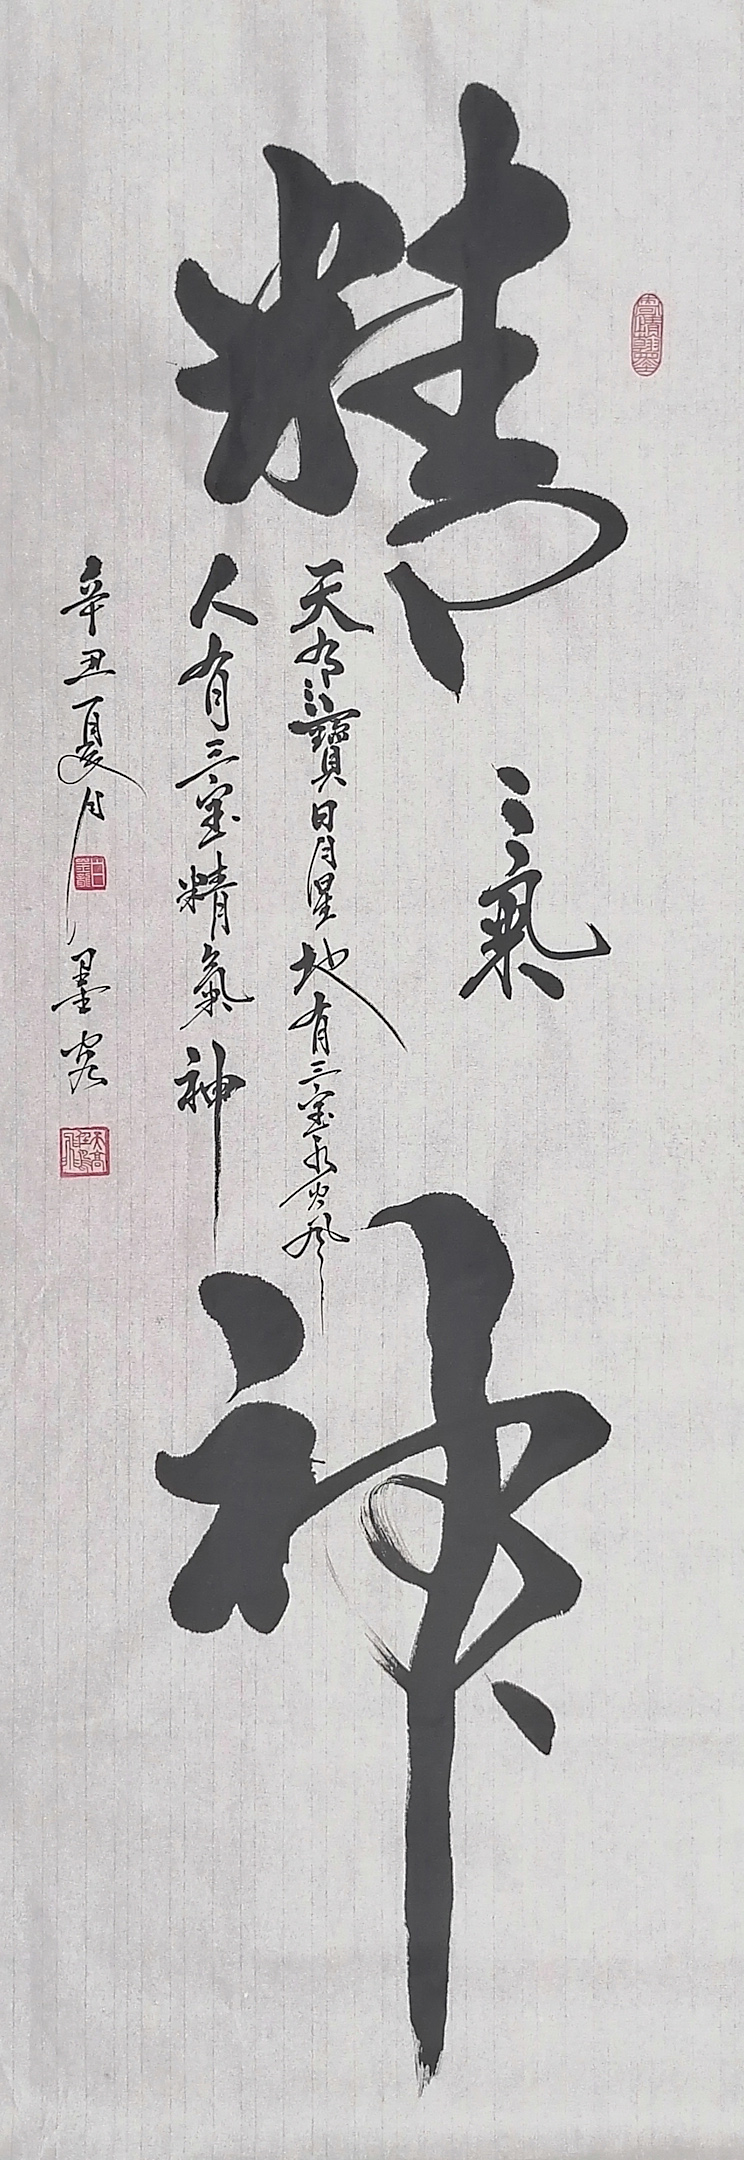 精
氣
神
天有三寶日月星地有三宝水火風
人有三宝精氣神
辛丑夏月
墨客